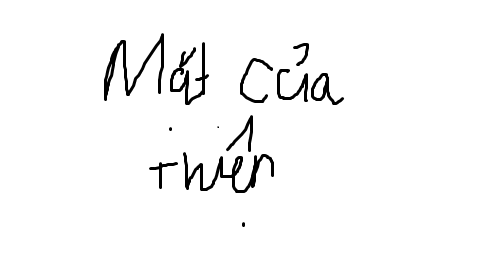 Mặt của
thiện